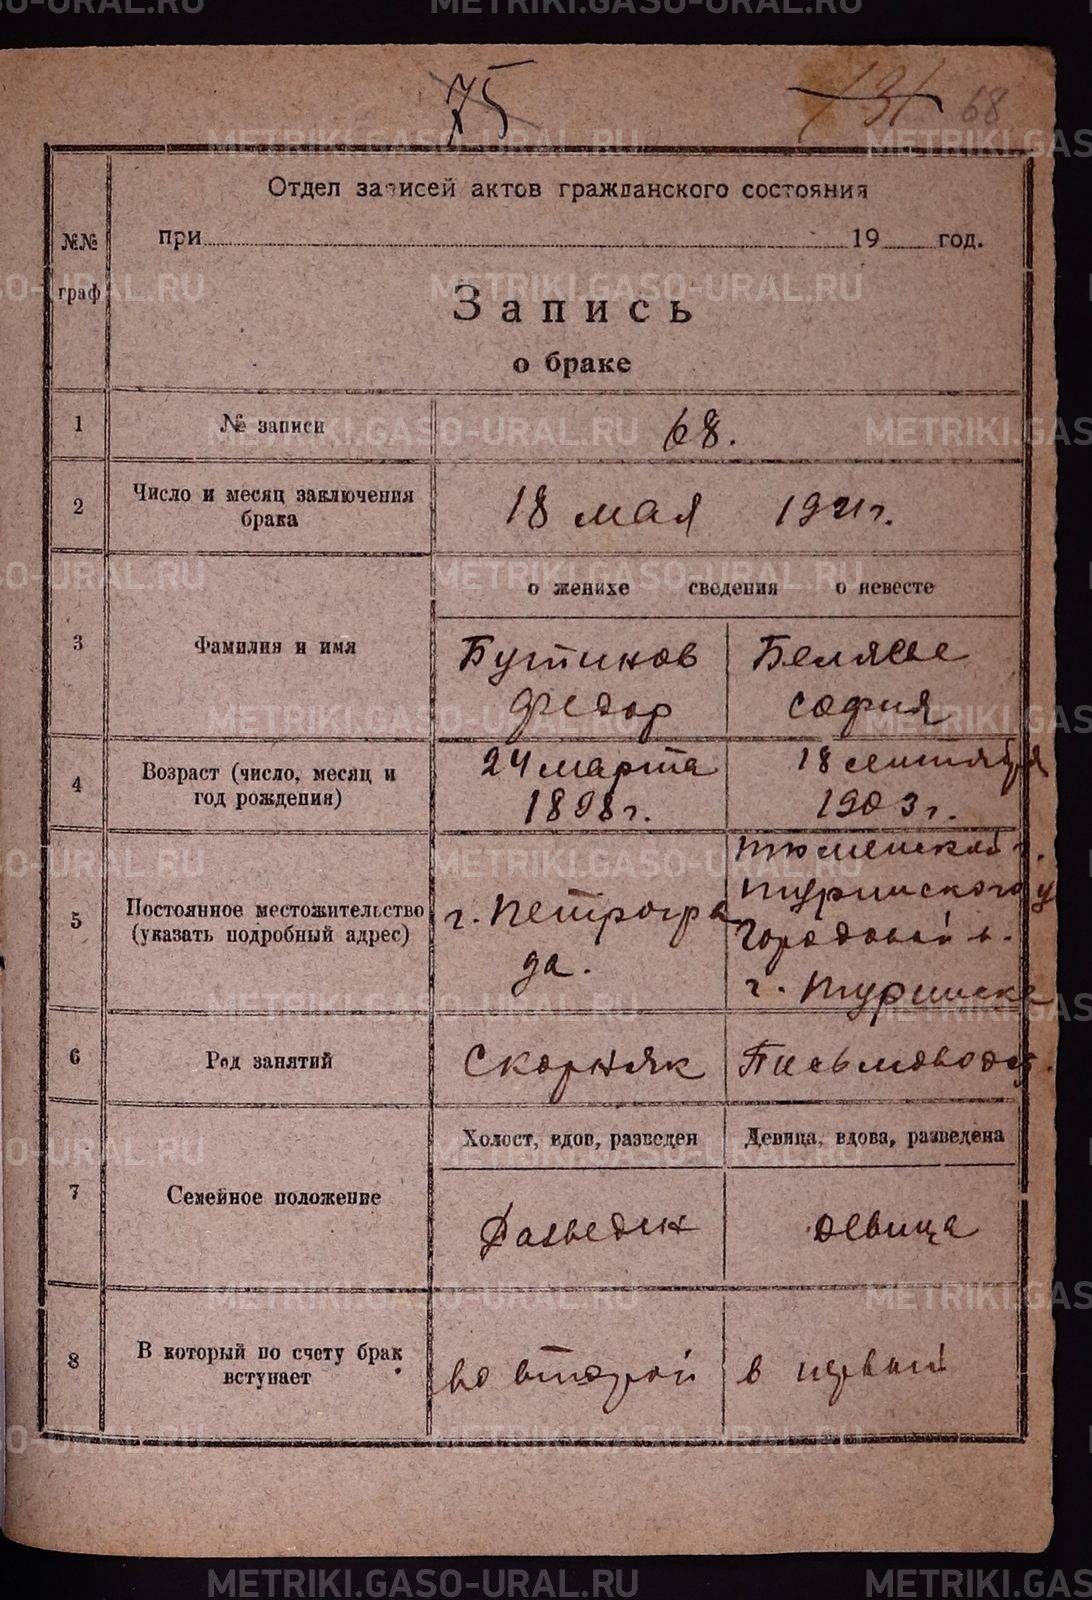 75
131 68
Отдел записей актов гражданского состояния
при 19 год.
№№
граф
Запись
о браке
1 № записи 68.
2 Число и месяц заключения
брака
18 мая 1921 г.
о женихе сведения о невесте
3 Фамилия и имя
Бутиков
Федор
Белясве
София
4 Возраст (число, месяц и
год рождения)
24 марта
1898 г.
18 сентября
1903 г.
5 Постоянное местожительство
(указать подробный адрес)
г. Петрогра
да.
Тюменской г.
Туринского у
Городовой в.
г. Туринске
6 Род занятий Скорняк Письмовод
7 Семейное положение
Холост, вдов, разведен
Девица, вдова, разведена
Разведен девица
8 В который по счету брак
вступает
во второй в первый
METRIKI.GASO-URAL.RU